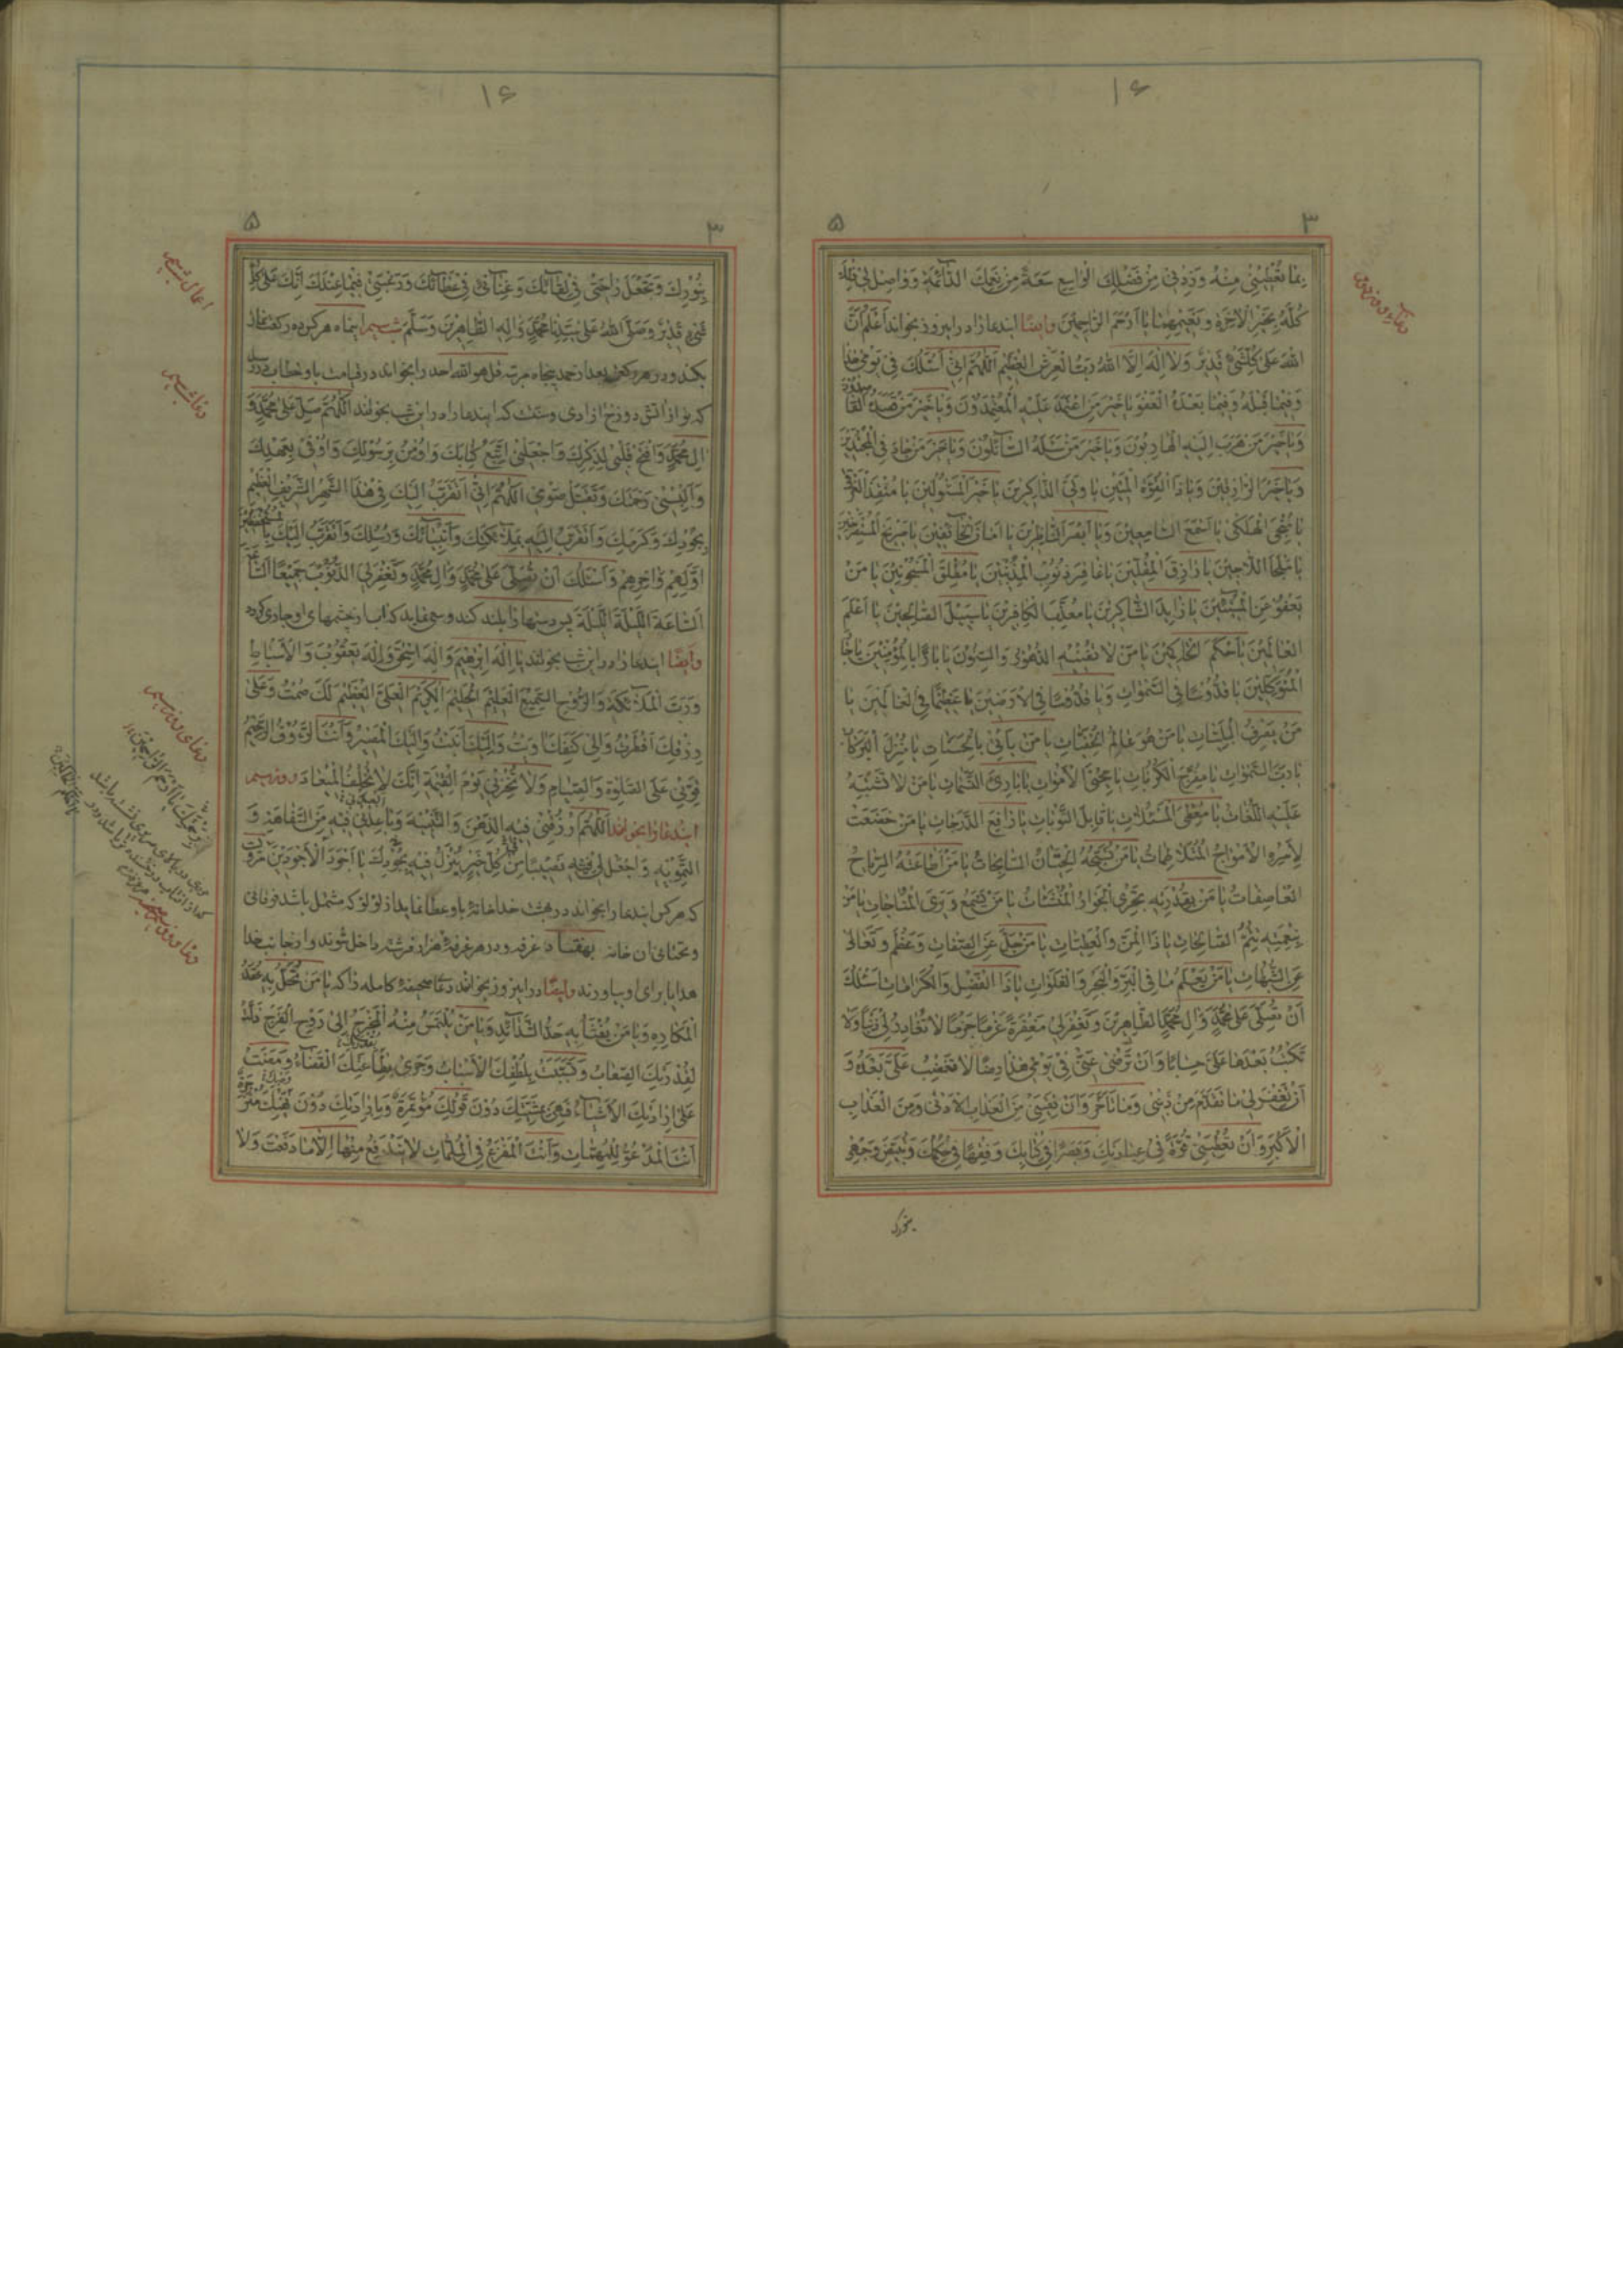 ۱۶
۳ ۵
بما تعطينى منه وزدنى من فضلك الواسع سعة من نعمك الدائمة وواصل لى
كله بخير الاخرة ونعيمها يا ارحم الراحمين وايضا ايندعا را در اين روز بخواند اعلم ان
الله على كل شىء قدير ولا اله الا الله رب العرش العظيم اللهم انى اسئلك فى يومى هذا
وفيما قبله وفيما بعده العفو يا خير من اعتمد عليه المعتمدون ويا خير من قصده
ويا خير من هرب اليه الهاربون ويا خير من سئله السائلون ويا خير من جاد
ويا خير الرازقين ويا ذا القوة المتين يا ولى الذاكرين يا خير المسئولين يا منقذ الغرقى
يا منجى الهلكى يا اسمع السامعين ويا ابصر الناظرين يا امان الخائفين يا صريخ المستصرخين
يا ملجا اللاجين يا رازق المقلين يا غافر ذنوب المذنبين يا مطلق المسجونين يا من
يعفو عن المسيئين يا زايد الشاكرين يا معذب الكافرين يا سبيل الصالحين يا اعلم
العالمين يا احكم الحاكمين يا من لا تفنيه الدهور والسنون يا بارا بالمؤمنين يا
المتوكلين يا قدوسا فى السموات ويا قدوسا فى الارضين يا عظيما فى العالمين يا
من يصرف البليات يا من هو عالم الخفيات يا من ياتى بالحسنات يا منزل البركات
يا رب السموات يا مفرج الكربات يا محيى الاموات يا بارئ النسمات يا من لا تشتبه
عليه اللغات يا معطى المسئلات يا قابل التوبات يا رافع الدرجات يا من خضعت
لامره الامواج المتلاطمات يا من تسبحه الحيتان السابحات يا من اطاعته الرياح
العاصفات يا من بقدرته تجرى الجوار المنشئات يا من يسمع ويرى المناجات يا من
بنعمته يتم الصالحات يا ذا المن والعطيات يا من جل عن الصفات وعظم وتعالى
عن الشبهات يا من يعلم ما فى البر والبحر والفلوات يا ذا الفضل والكرامات اسئلك
ان تصلى على محمد وال محمد الطاهرين وتغفر لى مغفرة عزما جزما لا تغادر لى ذنبا ولا
تكتب بعدها على حسابا وان ترضى عنى فى يومى هذا رضا لا تغضب على بعده و
ان تغفر لى ما تقدم من ذنبى وما تاخر وان تعيننى من العذاب الادنى ومن العذاب
الاكبر وان تعطينى قوة فى عبادتك وبصرا فى كتابك وفقها فى حكمك
۱۶
۳ ۵
بنورك وتجعل راحتى فى لقائك وغناى فى عطائك ورغبتى فيما عندك انك على كل
شىء قدير وصلى الله على سيدنا محمد واله الطاهرين وسلم شب سيم اينماه هر كس ده ركعت نماز
بكند ودر هر ركعت بعد از حمد پنجاه مرتبه قل هو الله احد را بخواند در قيامت باو خطاب در رسد
كه تو از اتش دوزخ ازادى وسنتست كه ايندعا را در اين شب بخوانند اللهم صل على محمد و
ال محمد وافتح قلبى لذكرك واجعلنى اتبع كتابك واومن برسولك واوفى بعهدك
والبسنى رحمتك وتقبل صومى اللهم انى اتقرب اليك فى هذا الشهر الشريف العظيم
بجودك وكرمك واتقرب اليه بملائكتك وانبيائك ورسلك واتقرب اليك
اولهم واخرهم واسئلك ان تصلى على محمد وال محمد وتغفر لى الذنوب جميعا
الساعة الليلة الليلة پس دستها را بلند كند وسعى نمايد كه اب از چشمهاى او جارى كردد
وايضا ايندعا را در اين شب بخوانند يا اله ابرهيم واله اسحق واله يعقوب والاسباط
ورب الملائكة والروح السميع العليم الحليم الكريم العلى العظيم لك صمت وعلى
رزقك افطرت والى كنفك اويت واليك انبت واليك المصير وانت الرؤف الرحيم
قونى على الصلوة والصيام ولا تخزنى يوم القيمة انك لا تخلف الميعاد روز سيم
ايندعا را بخوانند اللهم ارزقنى فيه الذهن والتنبيه وباعدنى فيه من السفاهة و
التمويه واجعل لى فيه نصيبا من كل خير ينزل فيه بجودك يا اجود الاجودين
كه هر كس ايندعا را بخواند در بهشت خدا خانۀ باو عطا نمايد از لؤلؤ كه مشتمل باشد فوقانى
وتحتانى ان خانه بهفتاد غرفه ودر هر غرفه هزار فرشته داخل شوند واز جانب خدا
هدايا براى او بياورند وايضا در اين روز بخوانند دعاى صحيفۀ كامله را كه يا من تحل به عقد
المكاره ويا من يفثأ به حد الشدائد ويا من يلتمس منه المخرج الى روح الفرج ذلت
لقدرتك الصعاب وتسببت بلطفك الاسباب وجرى بطاعتك القضاء ومضت
على ارادتك الاشياء فهى بمشيتك دون قولك مؤتمرة وبارادتك دون نهيك
انت المدعو للمهمات وانت المفزع فى الملمات لا يندفع منها الا ما دفعت ولا
اعمال شب سيم
دعا شب سيم
دعاى روز سيم